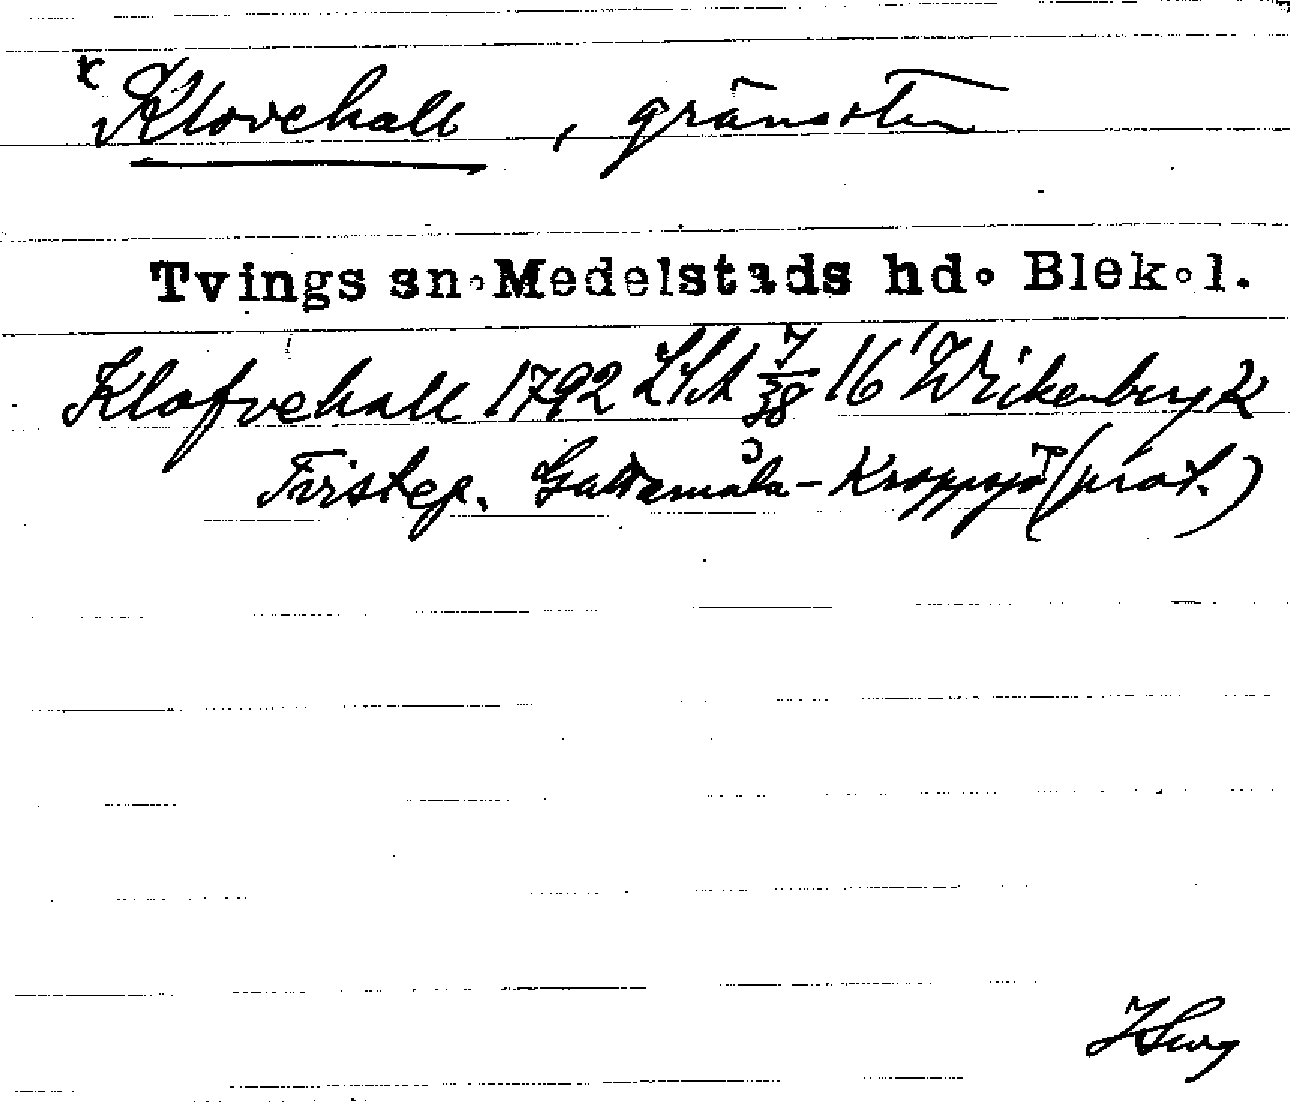 x Klovehall, gränsten
Tvings sn. Medelstads hd. Blek. l.
Klofvehall 1792 LSA 7/38 16 Wickenberg K
Tvistep. Gattamåla-Kroppsjö (prot.)